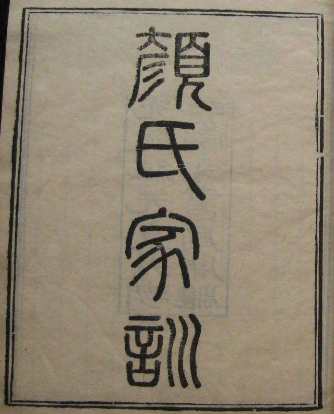 顏氏家訓